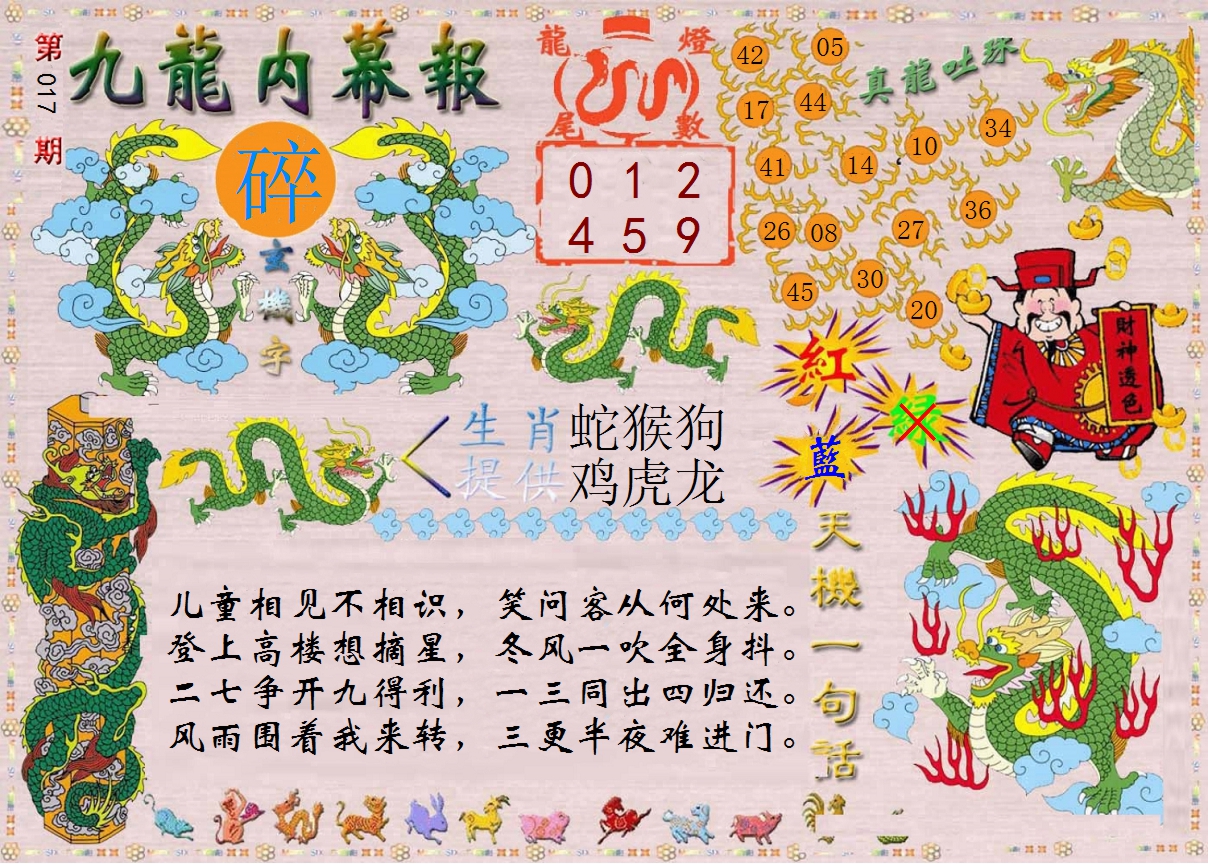 第017期
九龍内幕報
碎
玄機字
龍燈尾數
0 1 2
4 5 9
真龍吐珠
42
05
17
44
34
10
41
14
36
26
08
27
30
45
20
紅
绿
藍
財神透色
生肖
提供
蛇猴狗
鸡虎龙
天機一句话
儿童相见不相识，笑问客从何处来。
登上高楼想摘星，冬风一吹全身抖。
二七争开九得利，一三同出四归还。
风雨围着我来转，三更半夜难进门。